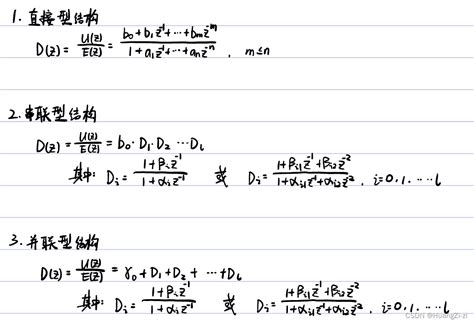 1. 直接型结构
D(z) = U(z)/E(z) = (b₀+b₁z⁻¹+⋯+bₘz⁻ᵐ)/(1+a₁z⁻¹+⋯+aₙz⁻ⁿ) , m≤n
2. 串联型结构
D(z) = U(z)/E(z) = b₀·D₁·D₂ ⋯D_l
其中: Dᵢ = (1+βᵢz⁻¹)/(1+αᵢz⁻¹) 或 Dᵢ = (1+βᵢ₁z⁻¹+βᵢ₂z⁻²)/(1+αᵢ₁z⁻¹+αᵢ₂z⁻²) , i=0,1,⋯⋯l
3. 并联型结构
D(z) = U(z)/E(z) = γ₀+D₁+D₂+ ⋯+D_l
其中: Dᵢ = (1+βᵢz⁻¹)/(1+αᵢz⁻¹) 或 Dᵢ = (1+βᵢ₁z⁻¹+βᵢ₂z⁻²)/(1+αᵢ₁z⁻¹+αᵢ₂z⁻²) , i=0,1,⋯⋯l